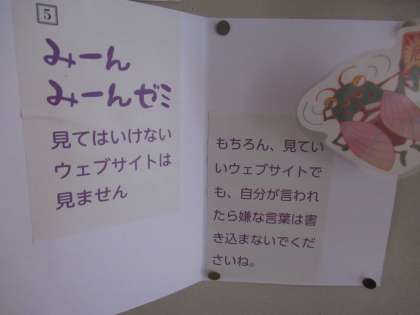 5
みーん
みーんゼミ
見てはいけない
ウェブサイトは
見ません
もちろん、見てい
いウェブサイトで
も、自分が言われ
たら嫌な言葉は書
き込まないでくだ
さいね。